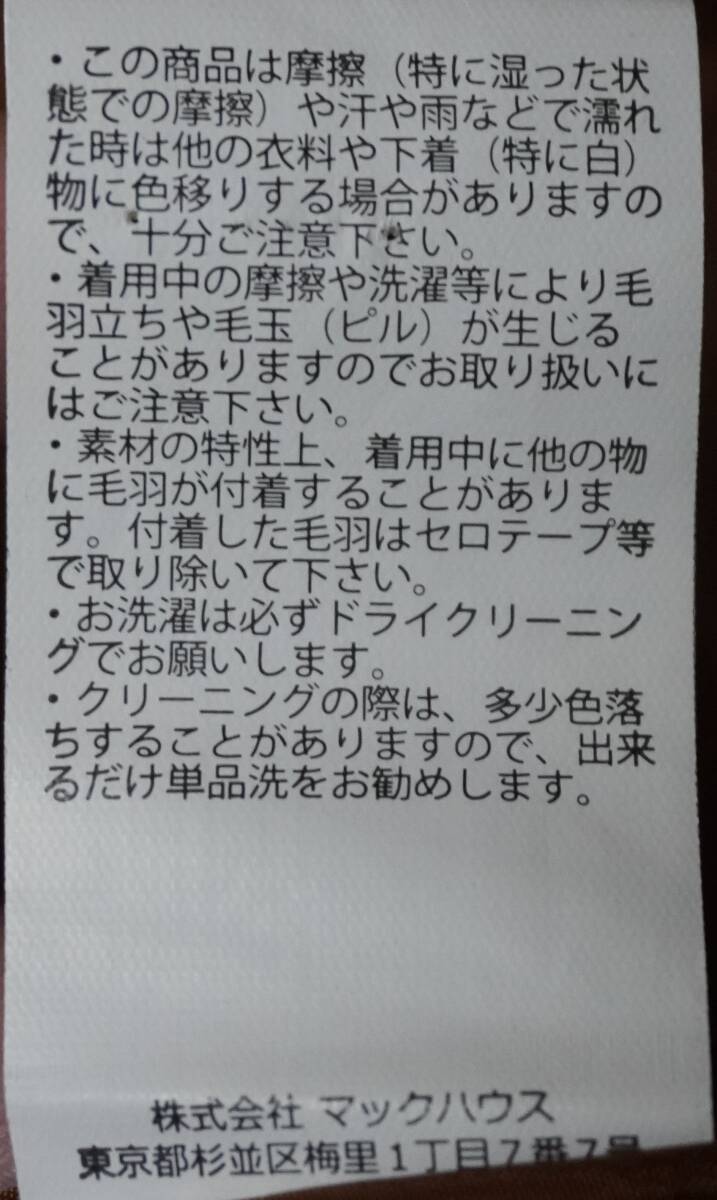 ・この商品は摩擦（特に湿った状
態での摩擦）や汗や雨などで濡れ
た時は他の衣料や下着（特に白）
物に色移りする場合がありますの
で、十分ご注意下さい。
・着用中の摩擦や洗濯等により毛
羽立ちや毛玉（ピル）が生じる
ことがありますのでお取り扱いに
はご注意下さい。
・素材の特性上、着用中に他の物
に毛羽が付着することがありま
す。付着した毛羽はセロテープ等
で取り除いて下さい。
・お洗濯は必ずドライクリーニン
グでお願いします。
・クリーニングの際は、多少色落
ちすることがありますので、出来
るだけ単品洗をお勧めします。
株式会社 マックハウス
東京都杉並区梅里1丁目7番7号